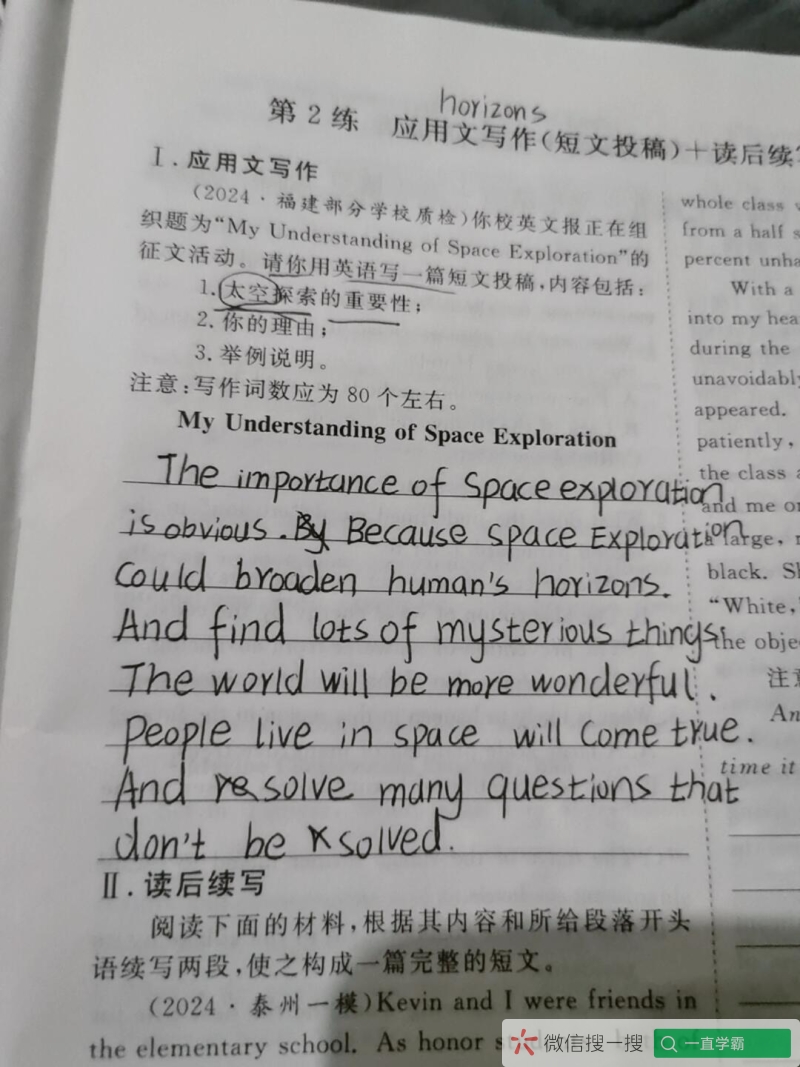 horizons
第2练 应用文写作(短文投稿)+读后续写
Ⅰ.应用文写作
(2024·福建部分学校质检)你校英文报正在组
织题为“My Understanding of Space Exploration”的
征文活动。请你用英语写一篇短文投稿,内容包括:
1.太空探索的重要性;
2.你的理由;
3.举例说明。
注意:写作词数应为80个左右。
My Understanding of Space Exploration
The importance of Space exploration
is obvious. By Because space Exploration
could broaden human's horizons.
And find lots of mysterious things.
The world will be more wonderful.
People live in space will come true.
And resolve many questions that
don't be solved.
Ⅱ.读后续写
阅读下面的材料,根据其内容和所给段落开头
语续写两段,使之构成一篇完整的短文。
(2024·泰州一模)Kevin and I were friends in
the elementary school. As honor
whole class
from a half
percent
With a
into my
during the
appeared.
patiently,
the class
and me
large,
black.
“White,
the
注
time it
微信搜一搜
一直学霸